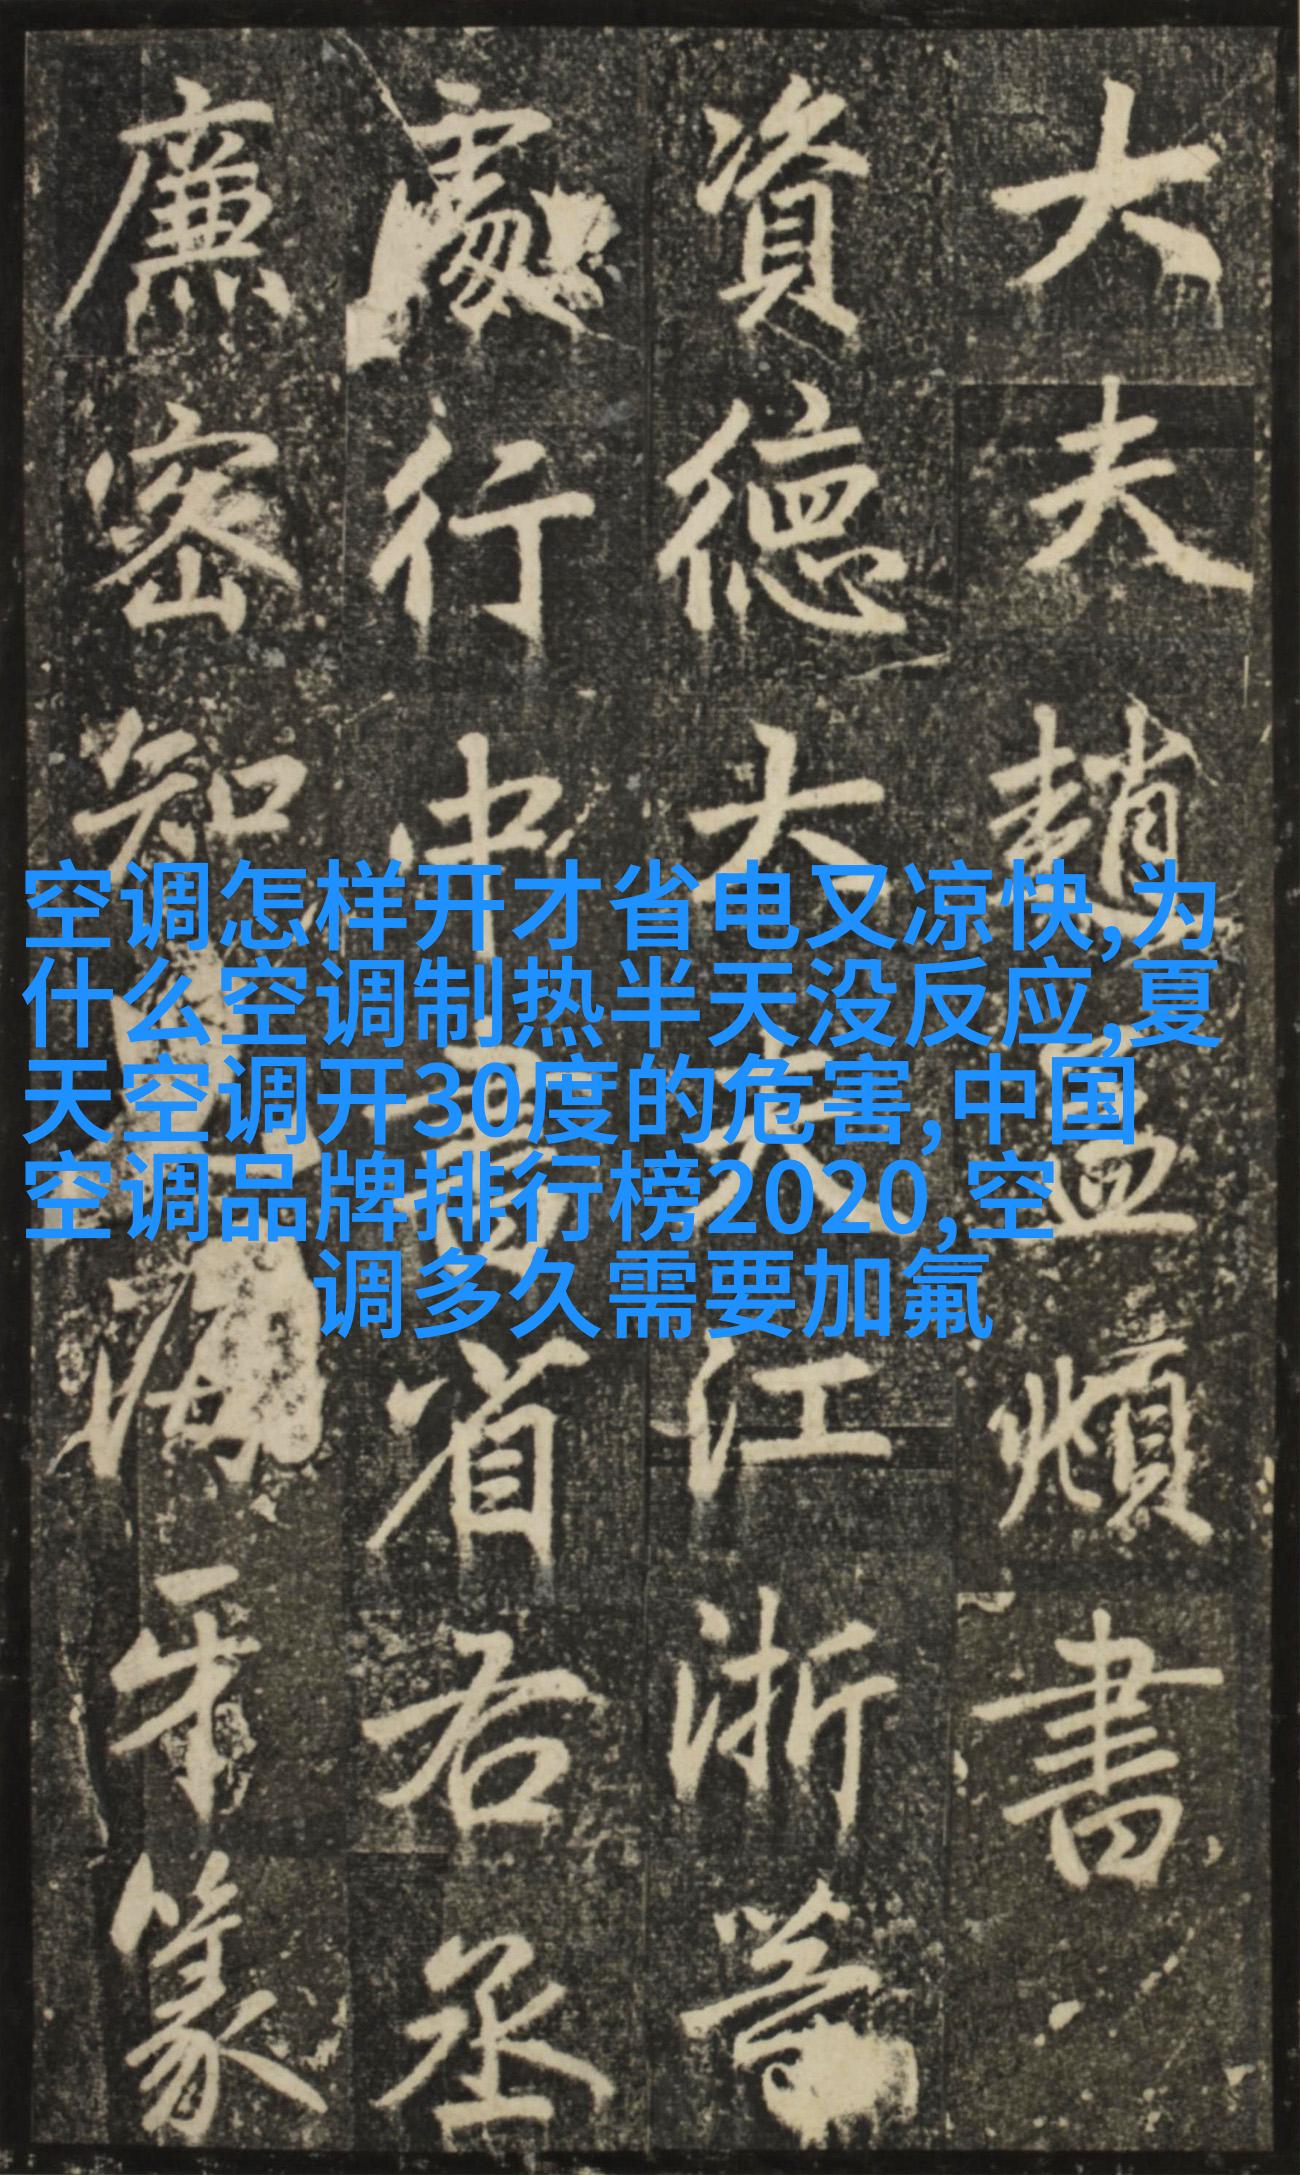 大夫趙孟頫書
資德大夫江浙等
處行中書省右丞
廉密知海牙篆
空调怎样开才省电又凉快,为
什么空调制热半天没反应,夏
天空调开30度的危害,中国
空调品牌排行榜2020,空
调多久需要加氟